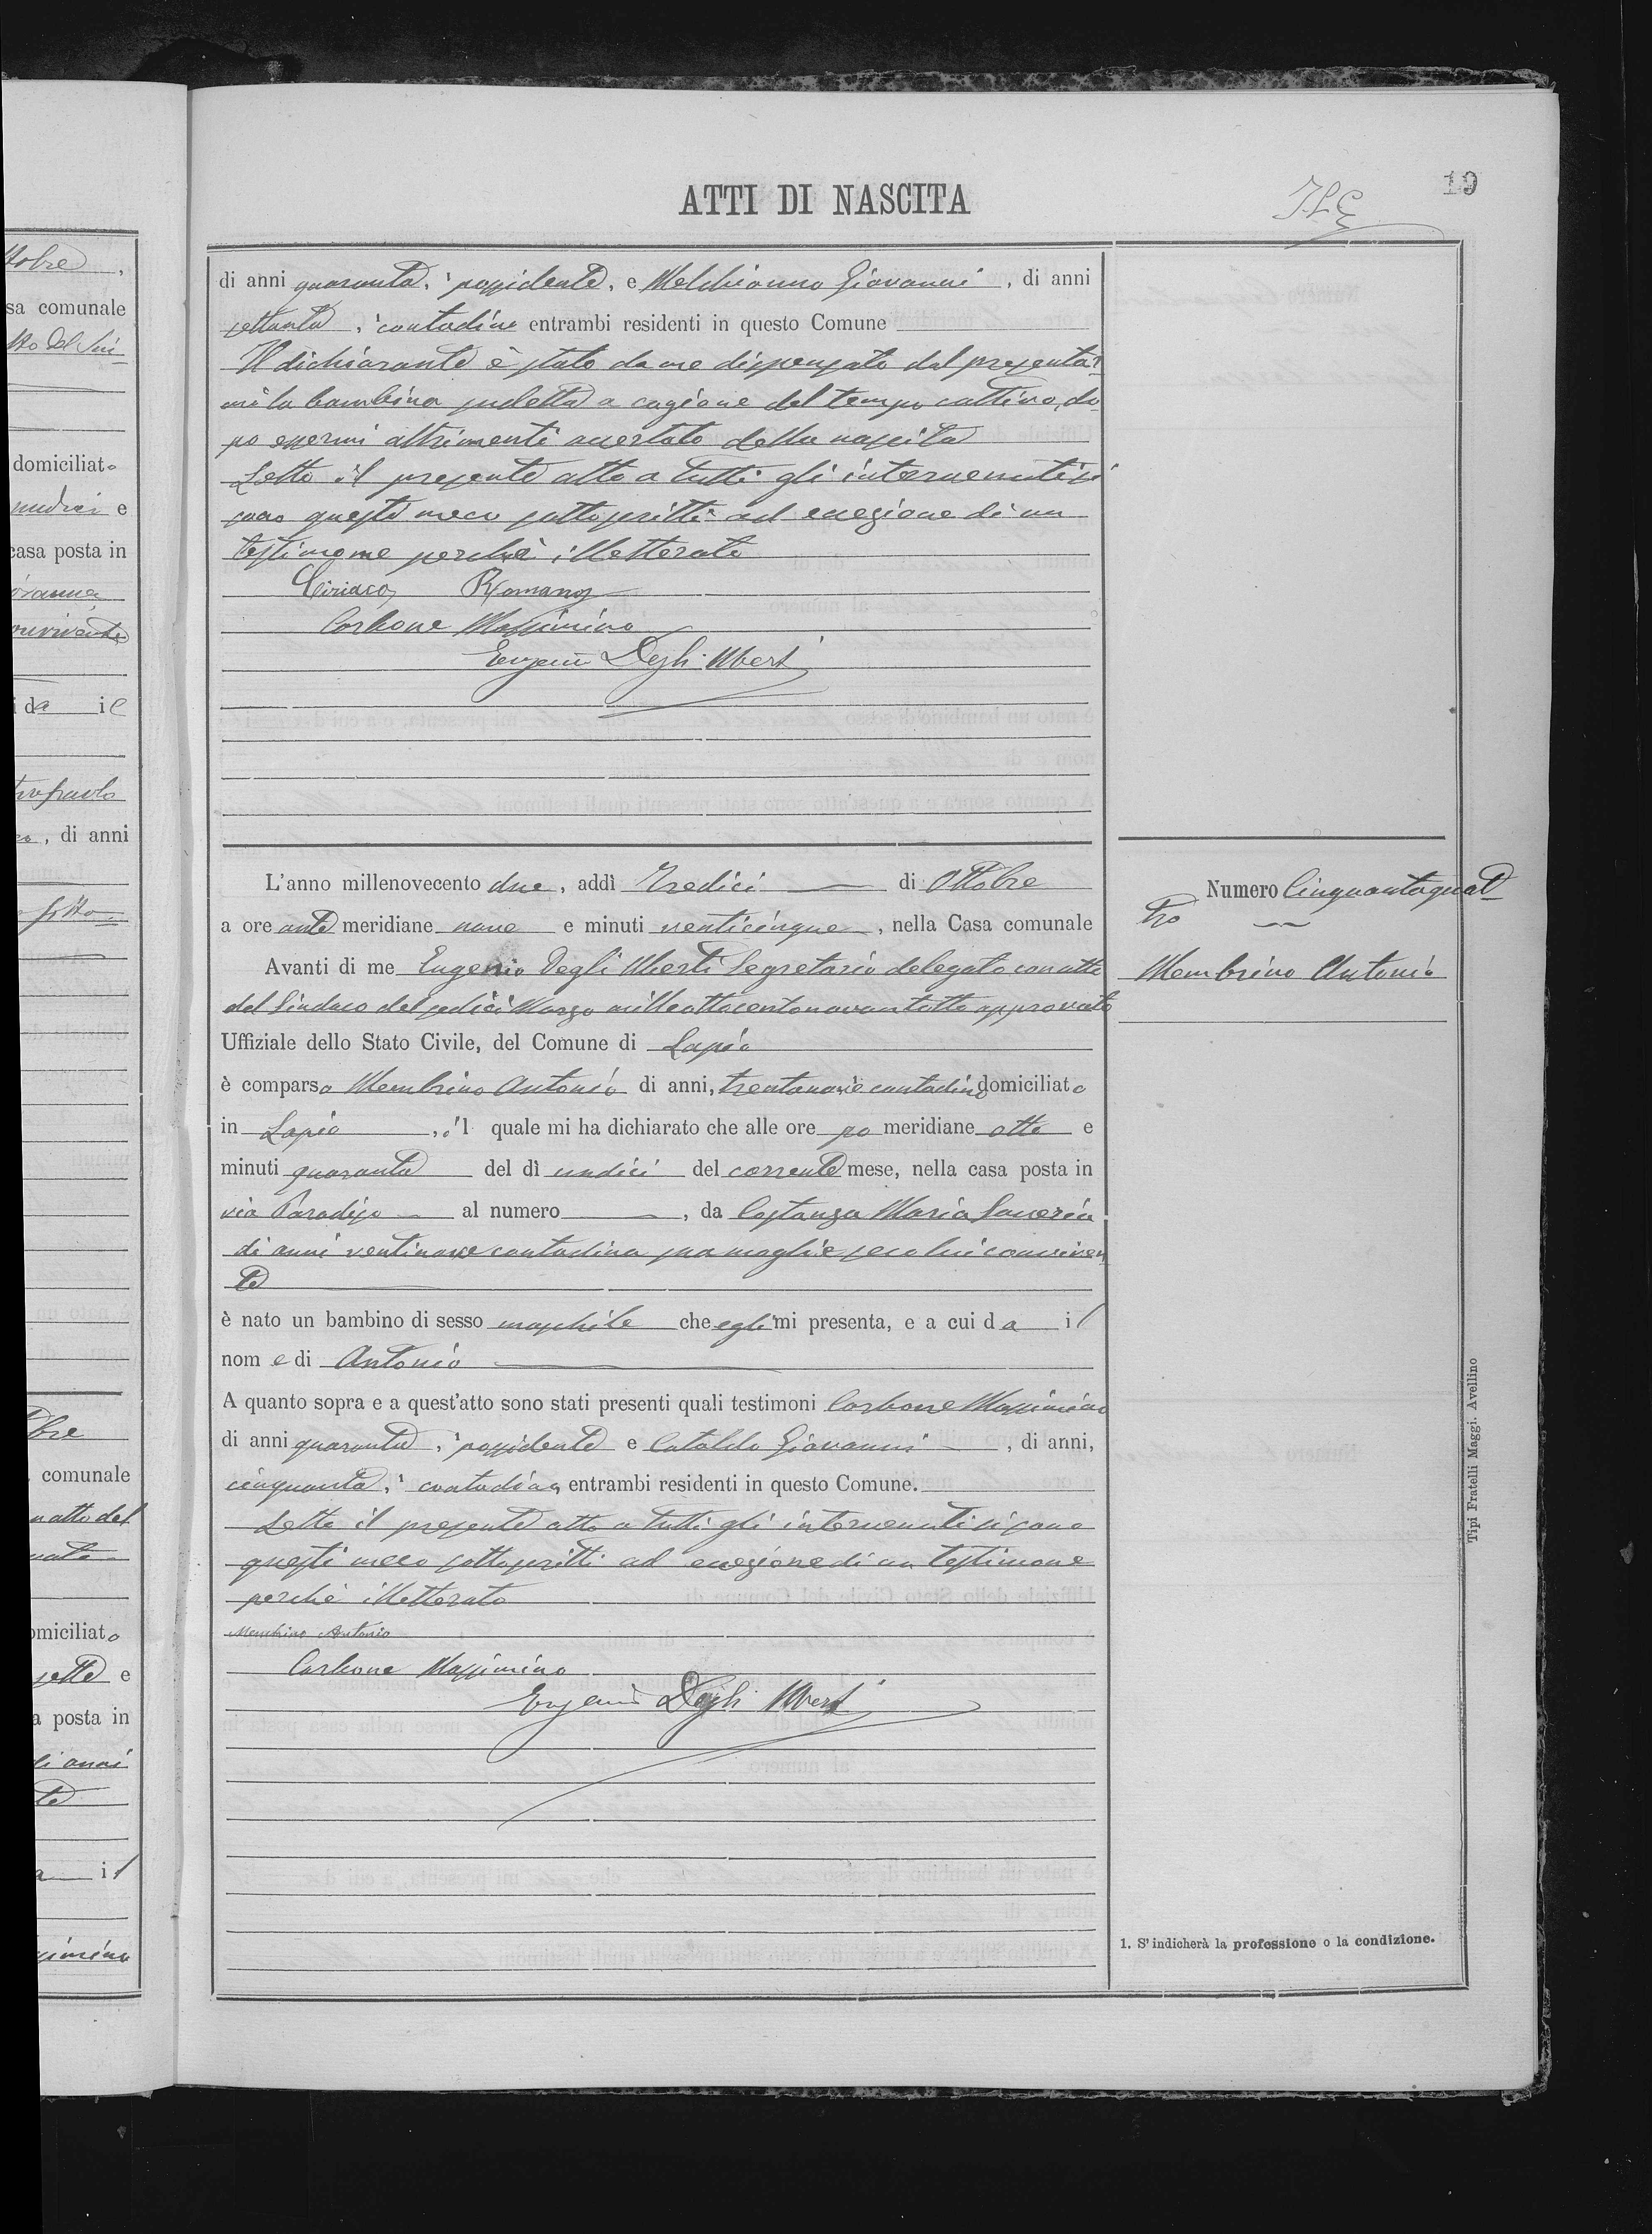 tobre,
sa comunale
tto del Sin-
domiciliato
undici e
casa posta in
ovanna
onvivente
i da il
di anni
comunale
n atto del
domiciliato
sette e
a posta in
di anni
te
a il
ssimino
ATTI DI NASCITA
19
di anni quaranta, possidente, e Melchionno Giovanni, di anni
settanta, contadino entrambi residenti in questo Comune
Il dichiarante è stato da me dispensato dal presentar
mi la bambina sudetta a cagione del tempo cattivo, do
po essermi altrimenti accertato della nascita
Letto il presente atto a tutti gli intervenuti si
sono questi meco sottoscritti ad eccezione di un
testimone perchè illetterato
Ciriaco Romano
Carbone Massimino
Eugenio Degli Uberti
L'anno millenovecento due, addì Tredici di Ottobre
a ore ante meridiane nove e minuti venticinque, nella Casa comunale
Avanti di me Eugenio Degli Uberti Segretario delegato con atto
del Sindaco del sedici Marzo milleottocentonovantotto approvato
Uffiziale dello Stato Civile, del Comune di Lapio
è comparso Membrino Antonio di anni, trentanove contadino domiciliato
in Lapio, il quale mi ha dichiarato che alle ore po meridiane otto e
minuti quaranta del dì undici del corrente mese, nella casa posta in
via Paradiso al numero , da Costanza Maria Saveria
di anni ventinove contadina sua moglie seco lui conviven
te
è nato un bambino di sesso maschile che egli mi presenta, e a cui da il
nome di Antonio
A quanto sopra e a quest'atto sono stati presenti quali testimoni Carbone Massimino
di anni quaranta, possidente e Cataldo Giovanni, di anni,
cinquanta, contadino, entrambi residenti in questo Comune.
Letto il presente atto a tutti gli intervenuti si sono
questi meco sottoscritti ad eccezione di un testimone
perchè illetterato
Membrino Antonio
Carbone Massimino
Eugenio Degli Uberti
Numero Cinquantaquat
tro
Membrino Antonio
1. S'indicherà la professione o la condizione.
Tipi Fratelli Maggi. Avellino